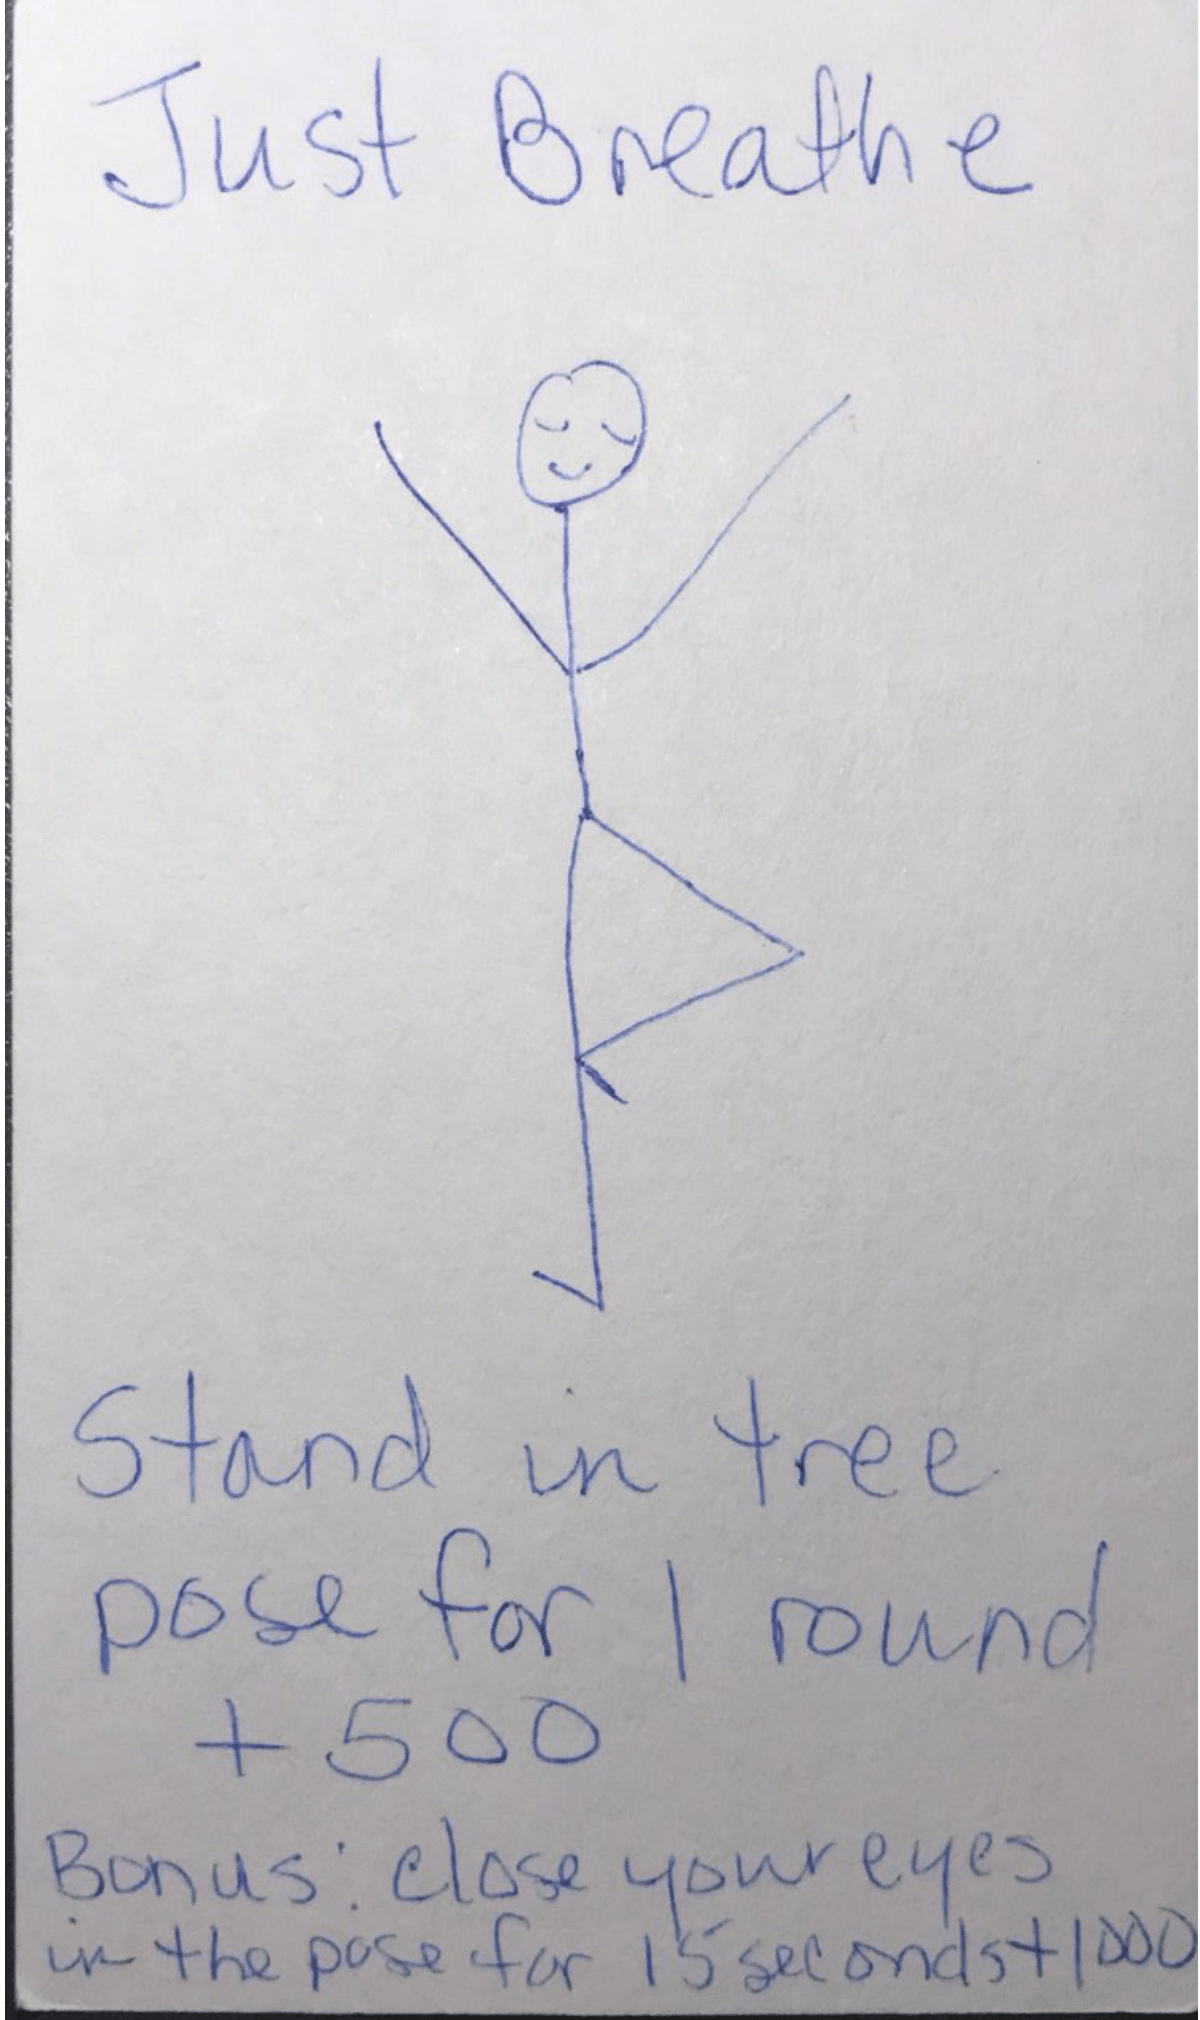 Just Breathe
Stand in tree
pose for 1 round
+500
Bonus: close your eyes
in the pose for 15 seconds +1000